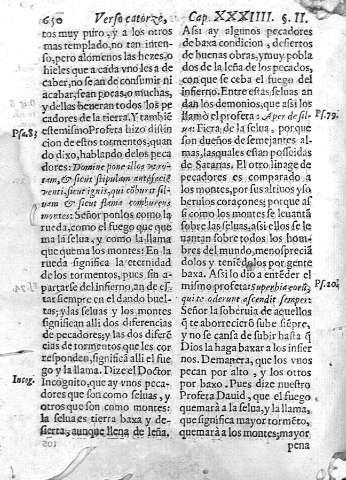 650 Verso catorze, Cap. XXXIIII. §. II.
tos muy puro, y a los otros
mas templado, no tan inten-
so, pero alomenos las hezes, o
hieles que a cada vno les a de
caber, no se an de consumir ni
acabar, sean pocas, o muchas,
y dellas beneran todos los pe
cadores de la tierra. Y tambiē
este mismo Profeta hizo distin
cion de estos tormentos, quan
do dixo, hablando de los peca
dores: Domine pone illos vt ro-
tam, & sicut stipulam ante faciē
venti, sicut ignis, qui cōburit sil-
uam & sicut flamma comburens
montes: Señor ponlos como la
rueda, como el fuego que que
ma la selua, y como la llama
que quema los montes: En la
rueda significa la eternidad
de los tormentos, pues sin a-
partarse del infierno, an de es-
tar siempre en el dando buel-
tas; y las seluas y los montes
significan alli dos diferencias
de pecadores; y las dos diferē
cias de tormētos que les cor-
respondē, significā alli el fue-
go y la llamā. Dize el Doctor
Incognito, que ay vnos peca-
dores que son como seluas, y
otros que son como montes:
la selua es tierra baxa y de-
sierta, aunque llena de leña.
Psa. 83
Incog.
Assi ay algunos pecadores
de baxa condicion, desiertos
de buenas obras, y muy pobla
dos de la leña de los pecados,
con que se ceba el fuego del
infierno. Entre estas seluas an
dan los demonios, que assi los
llamò el profeta: Aper de sil-
ua: Fiera de la selua, porque
son dueños de semejantes al-
mas, las quales estan posseidas
de Satanas. El otro image de
pecadores es comparado a
los montes, por sus altiuos y so
berulos coraçones; porque as-
si como los montes se leuantā
sobre las seluas, assi ellos se le
uantan sobre todos los hom-
bres del mundo, menosprecia
dolos y teniēdolos por gente
baxa. Assi lo dio a entēder el
mismo profeta: Superbia eorū,
qui te oderunt ascendit semper:
Señor la soberuia de aquellos
q̄ te aborreciērō sube siēpre,
y no se cansa de subir hasta q̄
Dios la haga baxar a los infier
nos. De manera, que los vnos
pecan por alto, y los otros
por baxo. Pues dize nuestro
Profeta Dauid, que el fuego
quemarà a la selua, y la llama,
que significa mayor tormēto,
quemarà a los montes; mayor
pena
Ps. 79.